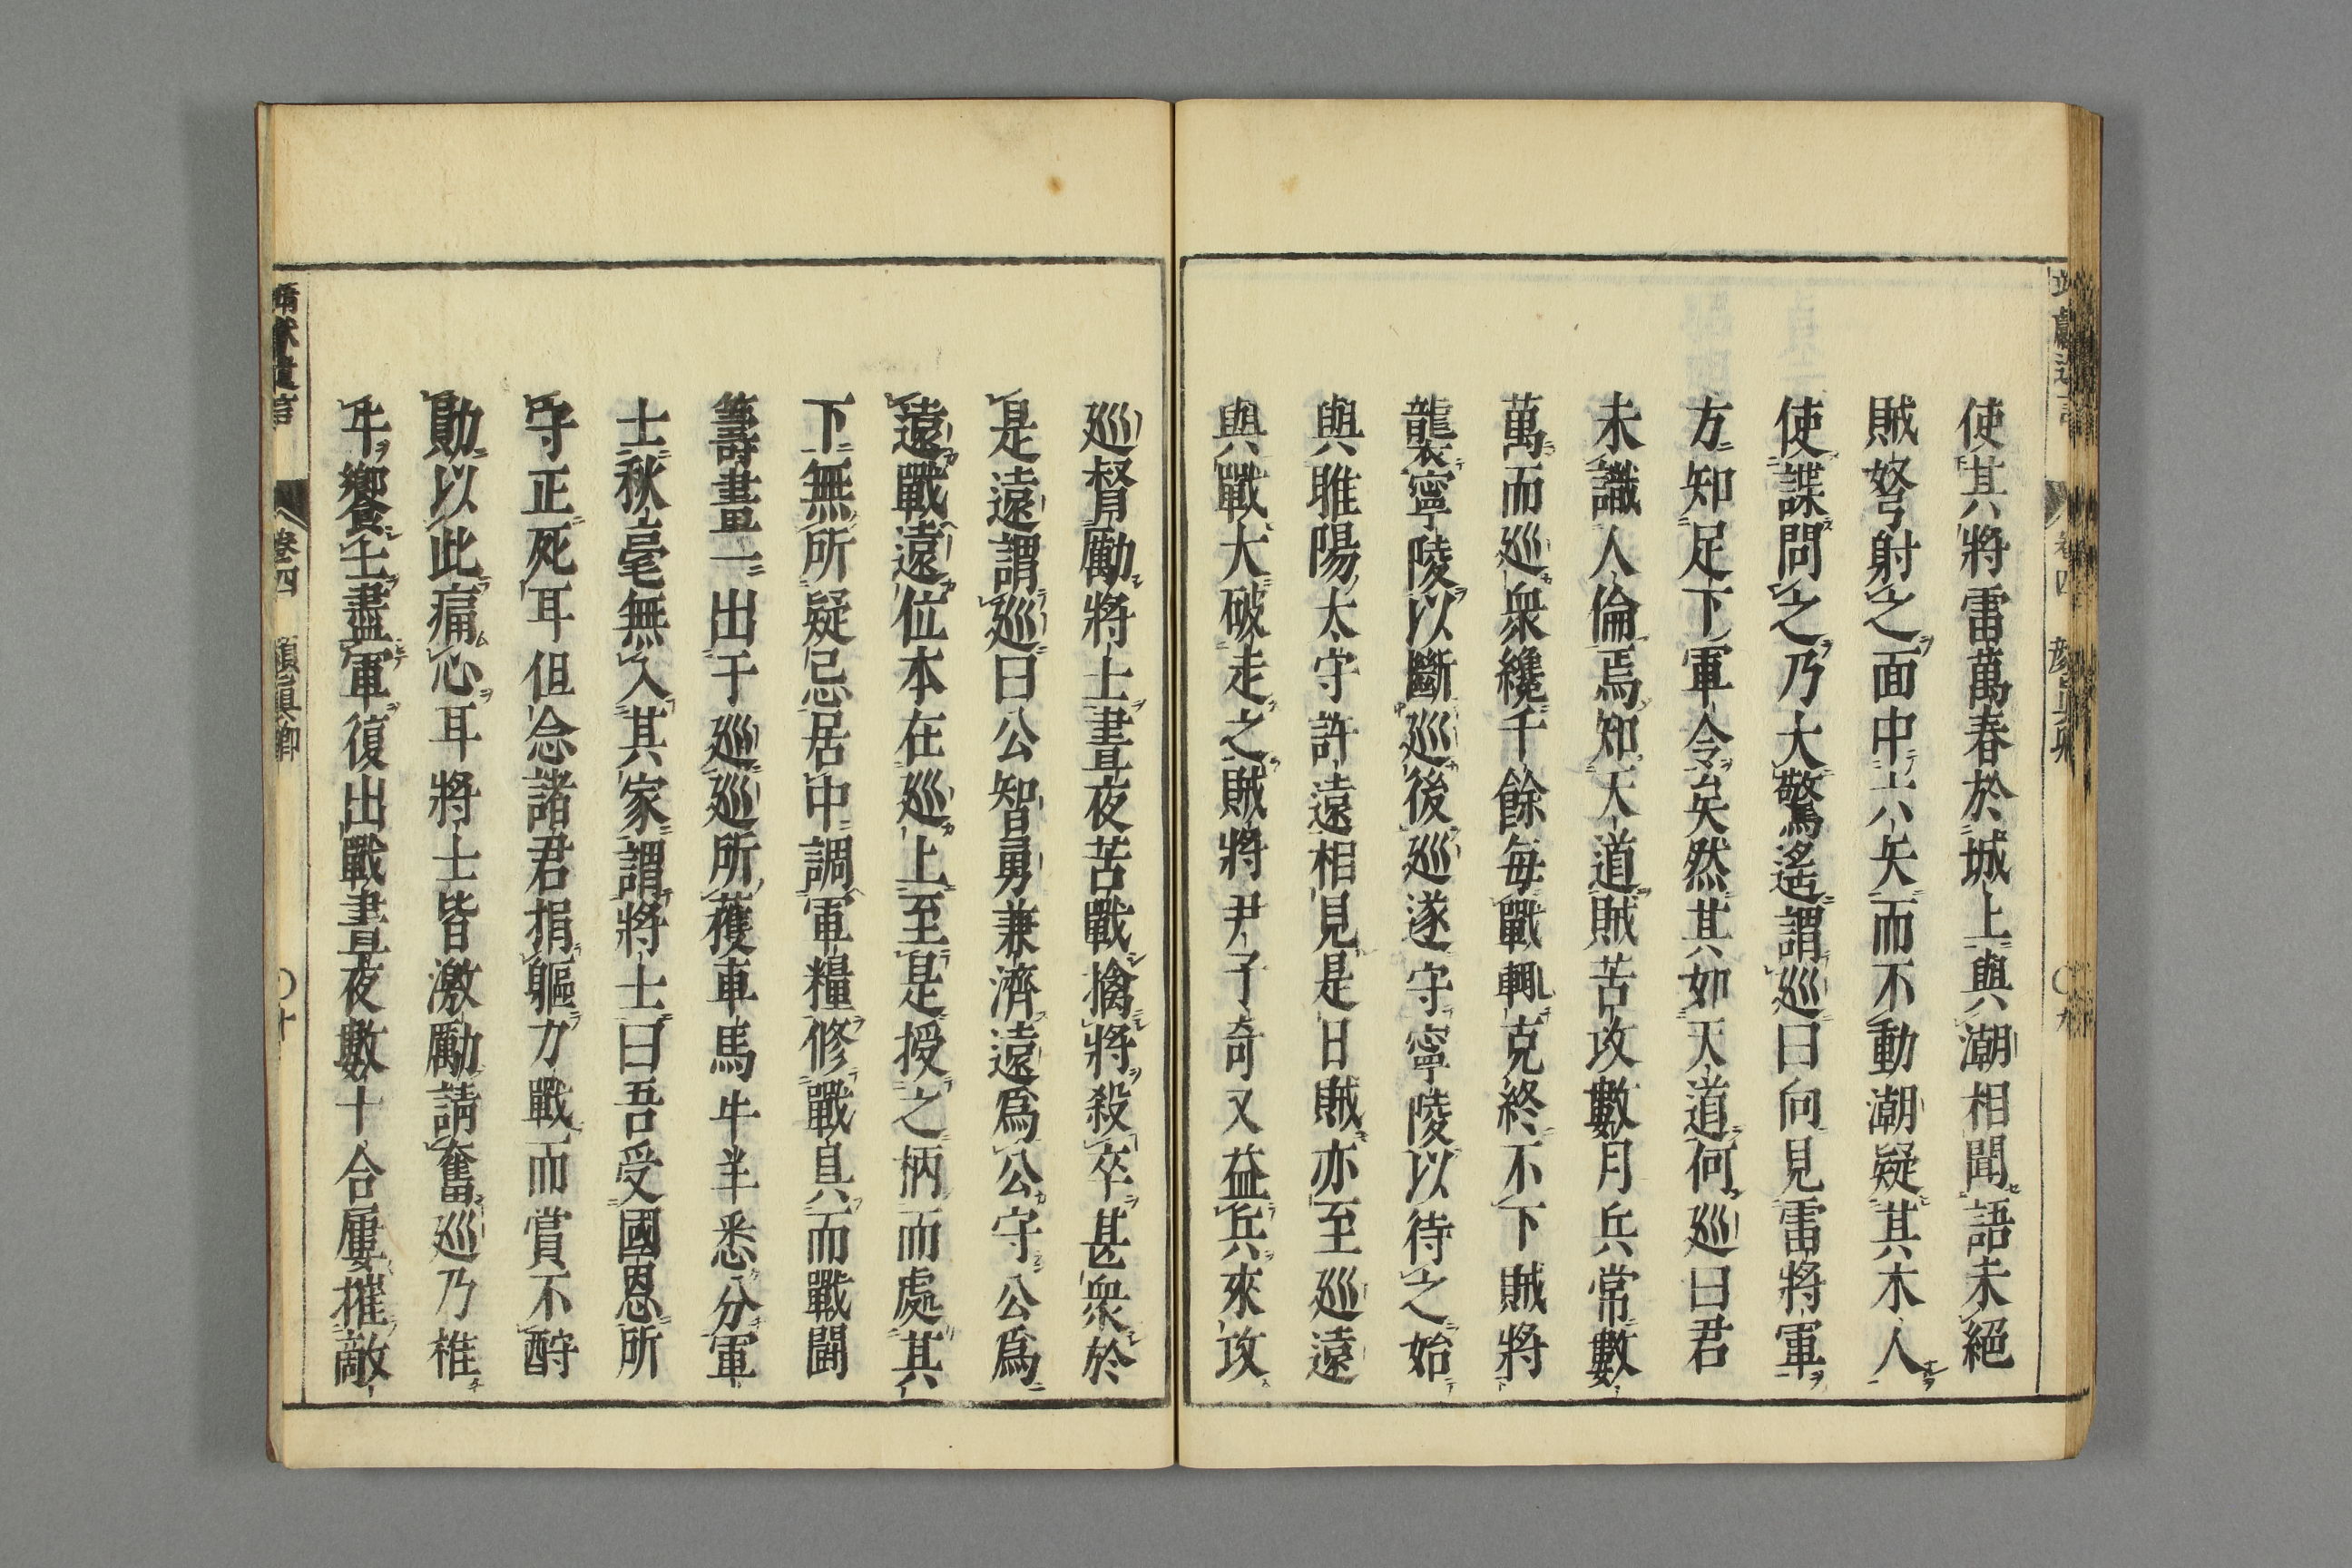 使其將雷萬春於城上與潮相聞語未絕
賊弩射之面中六矢而不動潮疑其木人
使諜問之乃大驚遙謂巡曰向見雷將軍
方知足下軍令矣然其如天道何巡曰君
未識人倫焉知天道賊苦攻數月兵常數
萬而巡衆纔千餘毎戰輒克終不下賊將
襲寧陵以斷巡後巡遂守寧陵以待之始
與睢陽太守許遠相見是日賊亦至巡遠
與戰大破走之賊將尹子奇又益兵來攻
巡督勵將士晝夜苦戰擒將殺卒甚衆於
是遠謂巡曰公智勇兼濟遠爲公守公爲
遠戰遠位本在巡上至是授之柄而處其
下無所疑忌居中調軍糧修戰具而戰鬪
籌畫一出于巡巡所獲車馬牛羊悉分軍
士秋毫無入其家謂將士曰吾受國恩所
守正死耳但念諸君捐軀力戰而賞不酧
勛以此痛心耳將士皆激勵請奮巡乃椎
牛饗士盡軍復出戰晝夜數十合屢摧敵
靖獻遺言 卷四 顏眞卿 〇十